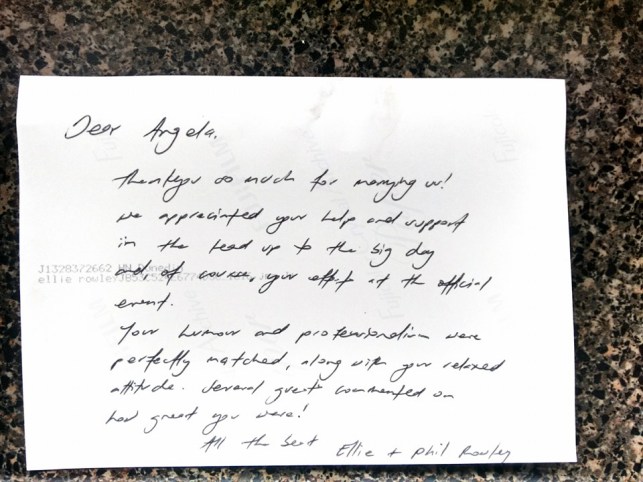 Dear Angela,
Thankyou so much for marrying us!
We appreciated your help and support
in the lead up to the big day
J1328372662
and of course, your effort at the official
ellie rowley
event.
Your humour and professionalism were
perfectly matched, along with your relaxed
attitude. Several guests commented on
how great you were!
All the best
Ellie + Phil Rowley